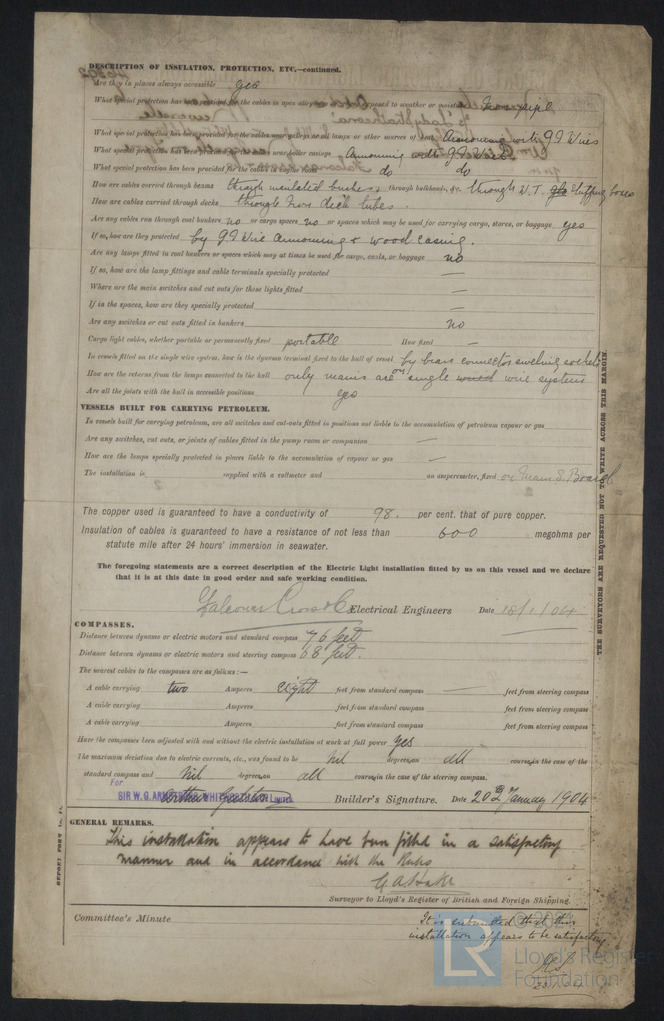 DESCRIPTION OF INSULATION, PROTECTION, ETC.—continued.
Are they in places always accessible yes
What special protection has been provided for the cables in open alleyways exposed to weather or moisture Iron pipe
What special protection has been provided for the cables near galleys or oil lamps or other sources of heat Armouring with G I Wires
What special protection has been provided near boiler casings Armouring with G I Wires
What special protection has been provided for the cables in engine room do do
How are cables carried through beams through insulated bushes, through bulkheads, &c. through W. T. stuffing boxes
How are cables carried through decks through Iron deck tubes.
Are any cables run through coal bunkers no or cargo spaces no or spaces which may be used for carrying cargo, stores, or baggage yes
If so, how are they protected by G I Wire armouring & wood casing.
Are any lamps fitted in coal bunkers or spaces which may at times be used for cargo, coals, or baggage no
If so, how are the lamp fittings and cable terminals specially protected —
Where are the main switches and cut outs for these lights fitted —
If in the spaces, how are they specially protected —
Are any switches or cut outs fitted in bunkers no
Cargo light cables, whether portable or permanently fixed portable How fixed —
In vessels fitted on the single wire system, how is the dynamo terminal fixed to the hull of vessel by brass connector sweating sockets
How are the returns from the lamps connected to the hull only mains are on single wire system
Are all the joints with the hull in accessible positions yes
VESSELS BUILT FOR CARRYING PETROLEUM.
In vessels built for carrying petroleum, are all switches and cut-outs fitted in positions not liable to the accumulation of petroleum vapour or gas
Are any switches, cut outs, or joints of cables fitted in the pump room or companion —
How are the lamps specially protected in places liable to the accumulation of vapour or gas —
The installation is supplied with a voltmeter and an amperemeter, fixed on Main S. Board
The copper used is guaranteed to have a conductivity of 98. per cent. that of pure copper.
Insulation of cables is guaranteed to have a resistance of not less than 600 megohms per
statute mile after 24 hours' immersion in seawater.
The foregoing statements are a correct description of the Electric Light installation fitted by us on this vessel and we declare
that it is at this date in good order and safe working condition.
Falconer Cross & Co Electrical Engineers Date 18/1/04
COMPASSES.
Distance between dynamo or electric motors and standard compass 76 feet
Distance between dynamo or electric motors and steering compass 68 feet.
The nearest cables to the compasses are as follows:—
A cable carrying two Amperes eight feet from standard compass — feet from steering compass
A cable carrying Amperes feet from standard compass feet from steering compass
A cable carrying Amperes feet from standard compass feet from steering compass
Have the compasses been adjusted with and without the electric installation at work at full power Yes
The maximum deviation due to electric currents, etc., was found to be Nil degrees on all course, in the case of the
standard compass and Nil degrees on all course, in the case of the steering compass.
For
SIR W. G. ARMSTRONG, WHITWORTH & CO. LIMITED Builder's Signature. Date 20th January 1904
GENERAL REMARKS.
This installation appears to have been fitted in a satisfactory
manner and in accordance with the Rules
Surveyor to Lloyd's Register of British and Foreign Shipping.
Committee's Minute
It is submitted that this
installation appears to be satisfactory
THE SURVEYORS ARE REQUESTED NOT TO WRITE ACROSS THIS MARGIN.
LR
Lloyd's Register
Foundation